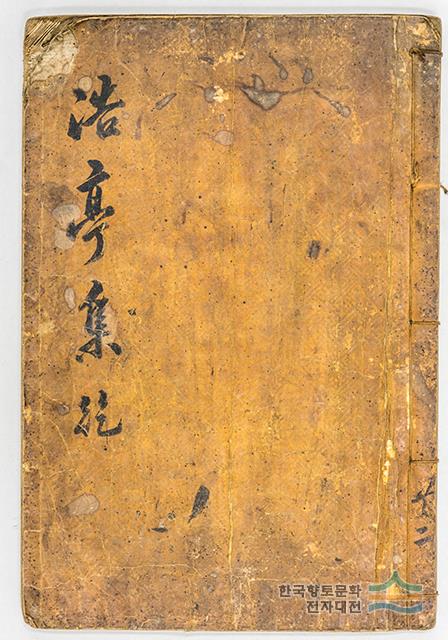 浩亭集 乾
共二
한국향토문화
전자대전